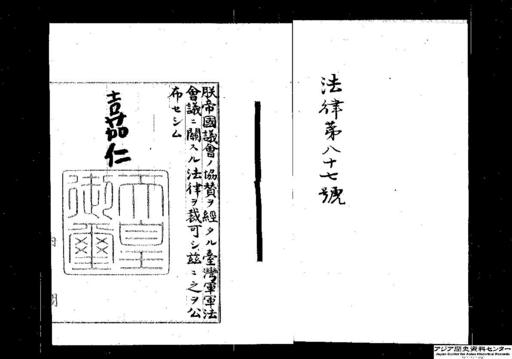 法律第八十七號
朕帝國議會ノ協賛ヲ經タル臺灣軍軍法
會議ニ關スル法律ヲ裁可シ茲ニ之ヲ公
布セシム
嘉仁
天皇
御璽
アジア歴史資料センター
Japan Center for Asian Historical Records